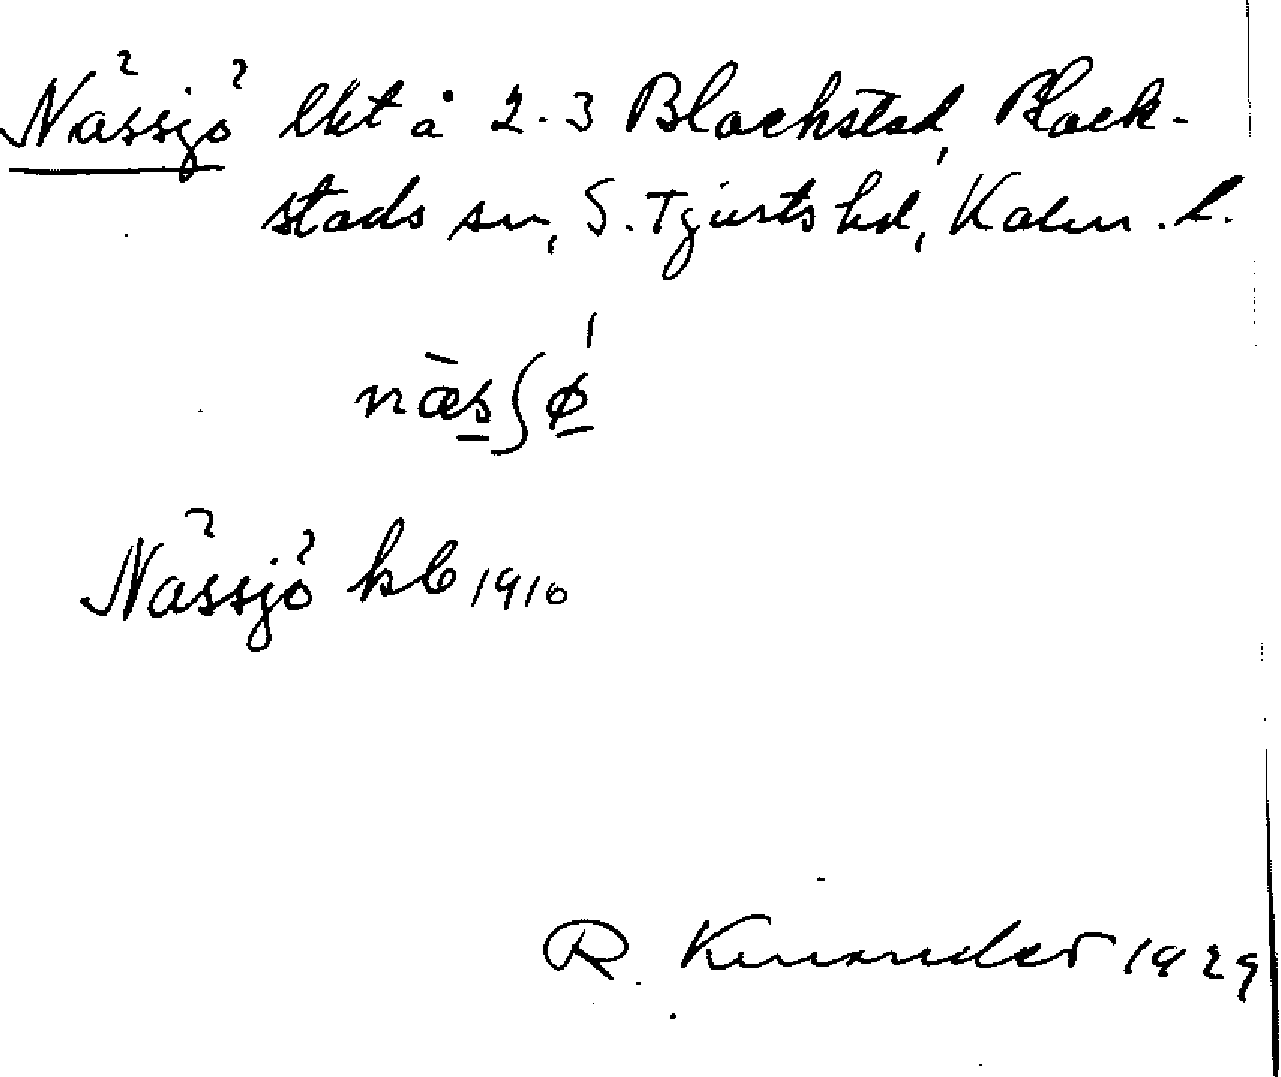 Nässjö lht å 2-3 Blackstad, Black-
stads sn, S. Tjusts hd, Kalm. l.
næs∫ø
Nässjö kb 1910
R. Kinander 1929